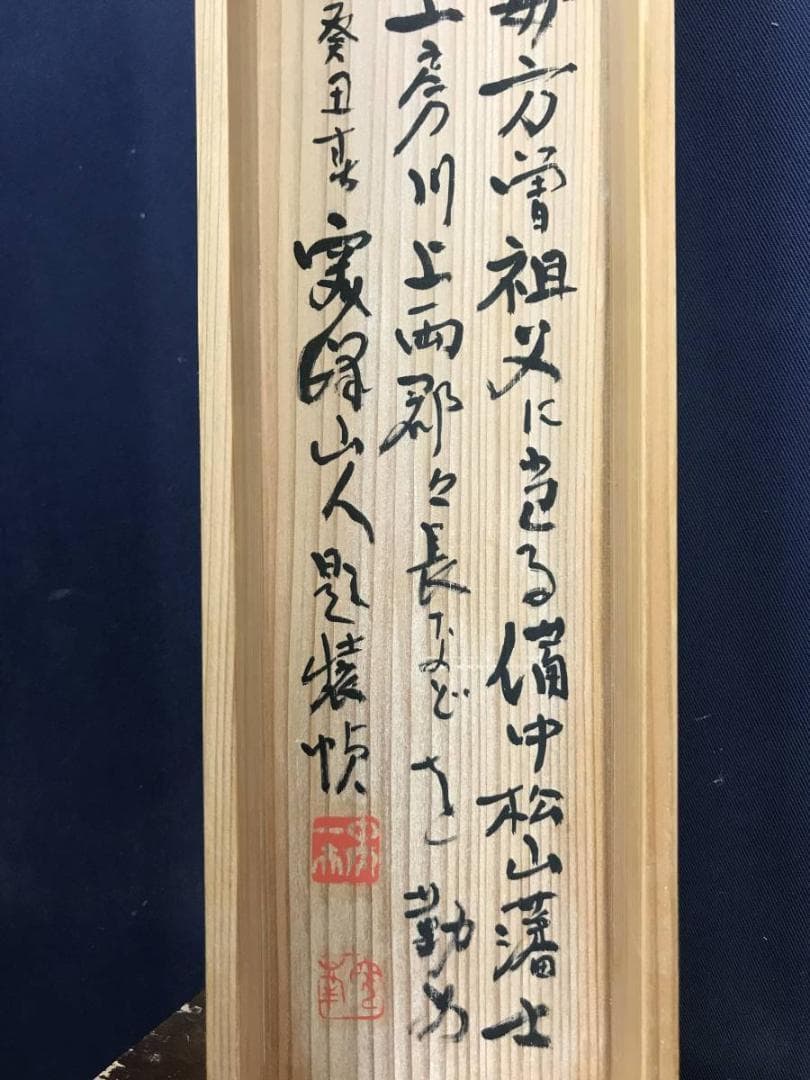 母方曽祖父に当る備中松山藩士
上房川上両郡々長などを勤め
癸丑春 寞峰山人題装幀